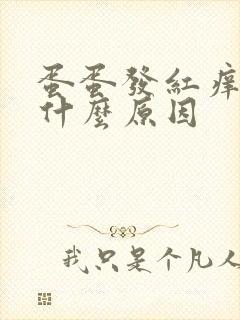 蛋蛋發紅痒
什麼原因
我只是个凡人